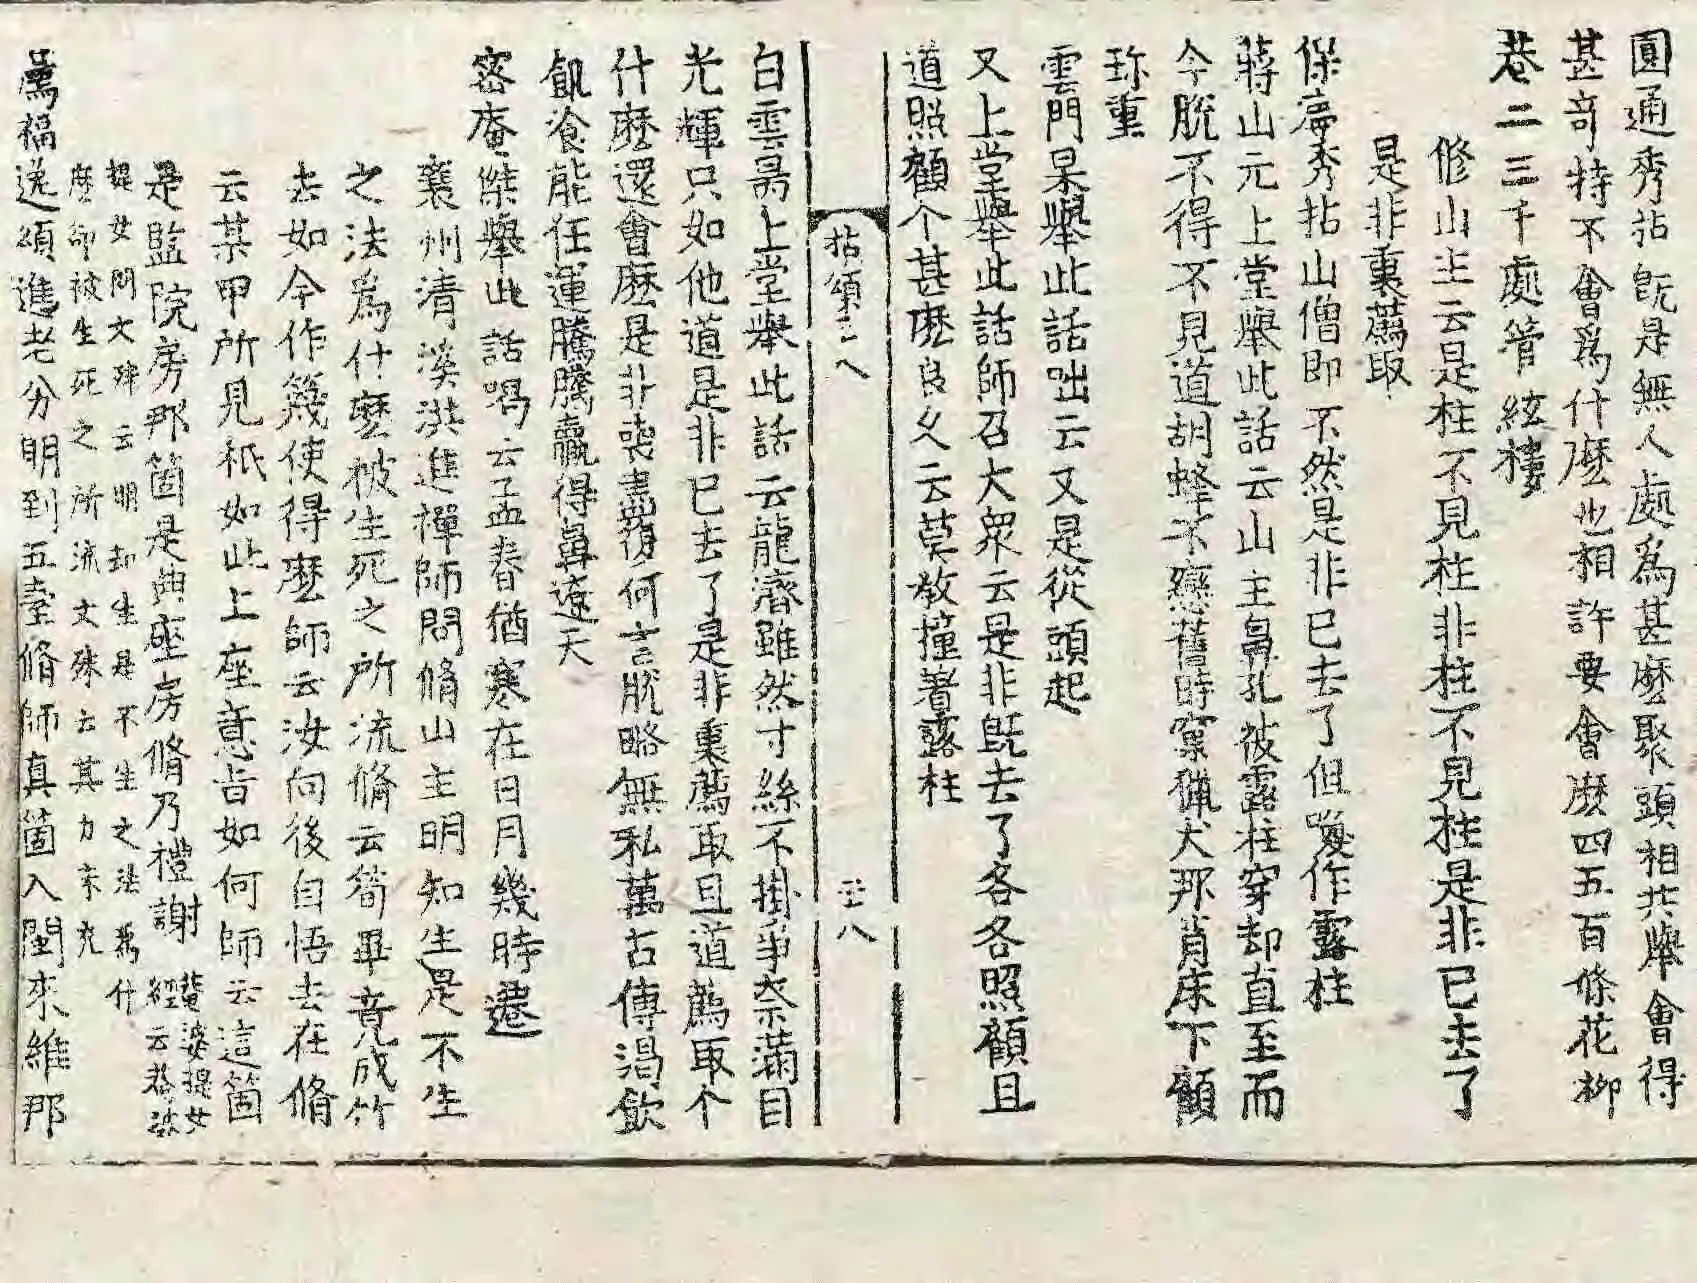 圓通秀拈旣是無人處爲甚麽聚頭相共舉會得
甚奇特不會爲什麽也相許要會麽四五百條花柳
巷二三千處管絃樓
修山主云是柱不見柱非柱不見柱是非已去了
是非裏薦取
保寧秀拈山僧即不然是非已去了但喚作露柱
蔣山元上堂舉此話云山主鼻孔被露柱穿却直至而
今脫不得不見道胡蜂不戀舊時窠猵犬那肯床下顧
珎重
雲門杲舉此話咄云又是從頭起
又上堂舉此話師召大衆云是非旣去了各各照顧且
道照顧个甚麽良久云莫教撞著露柱
拈頌三八
十八
白雲昺上堂舉此話云龍濟雖然寸絲不掛爭奈滿目
光輝只如他道是非已去了是非裏薦取且道薦取个
什麽還會麽是非喪盡復何言脫略無私萬古傳渴飲
飢飡能任運騰騰贏得鼻遼天
密庵傑舉此話喝云孟春猶寒在日月幾時遷
襄州清溪洪進禪師問脩山主明知生是不生
之法爲什麽被生死之所流脩云筍畢竟成竹
去如今作篾使得麽師云汝向後自悟去在脩
云某甲所見秖如此上座意旨如何師云這箇
是監院房那箇是典座房脩乃禮謝 菴婆提女經云菴婆
提女問文殊云明知生是不生之法爲什
麽却被生死之所流文殊云其力未充
薦福逸頌進老分明到五臺脩師真箇入閩來維那